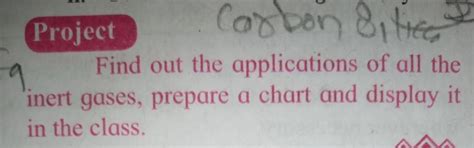 Carbon
Project
Find out the applications of all the
inert gases, prepare a chart and display it
in the class.